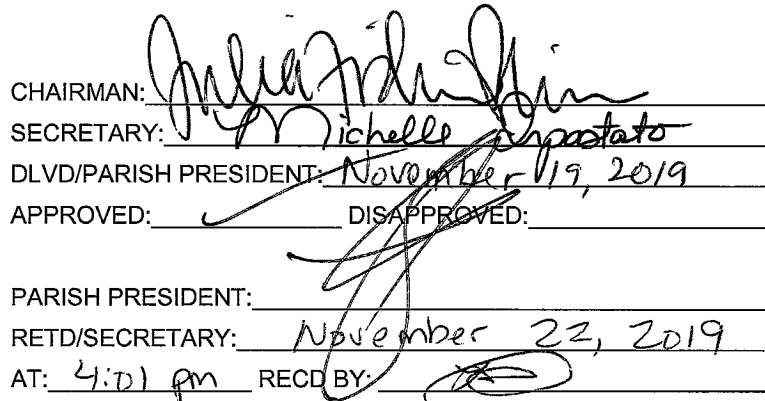 CHAIRMAN: Julia
SECRETARY: Michelle Impastato
DLVD/PARISH PRESIDENT: November 19, 2019
APPROVED: ✓ DISAPPROVED:
PARISH PRESIDENT:
RETD/SECRETARY: November 22, 2019
AT: 4:01 pm RECD BY: